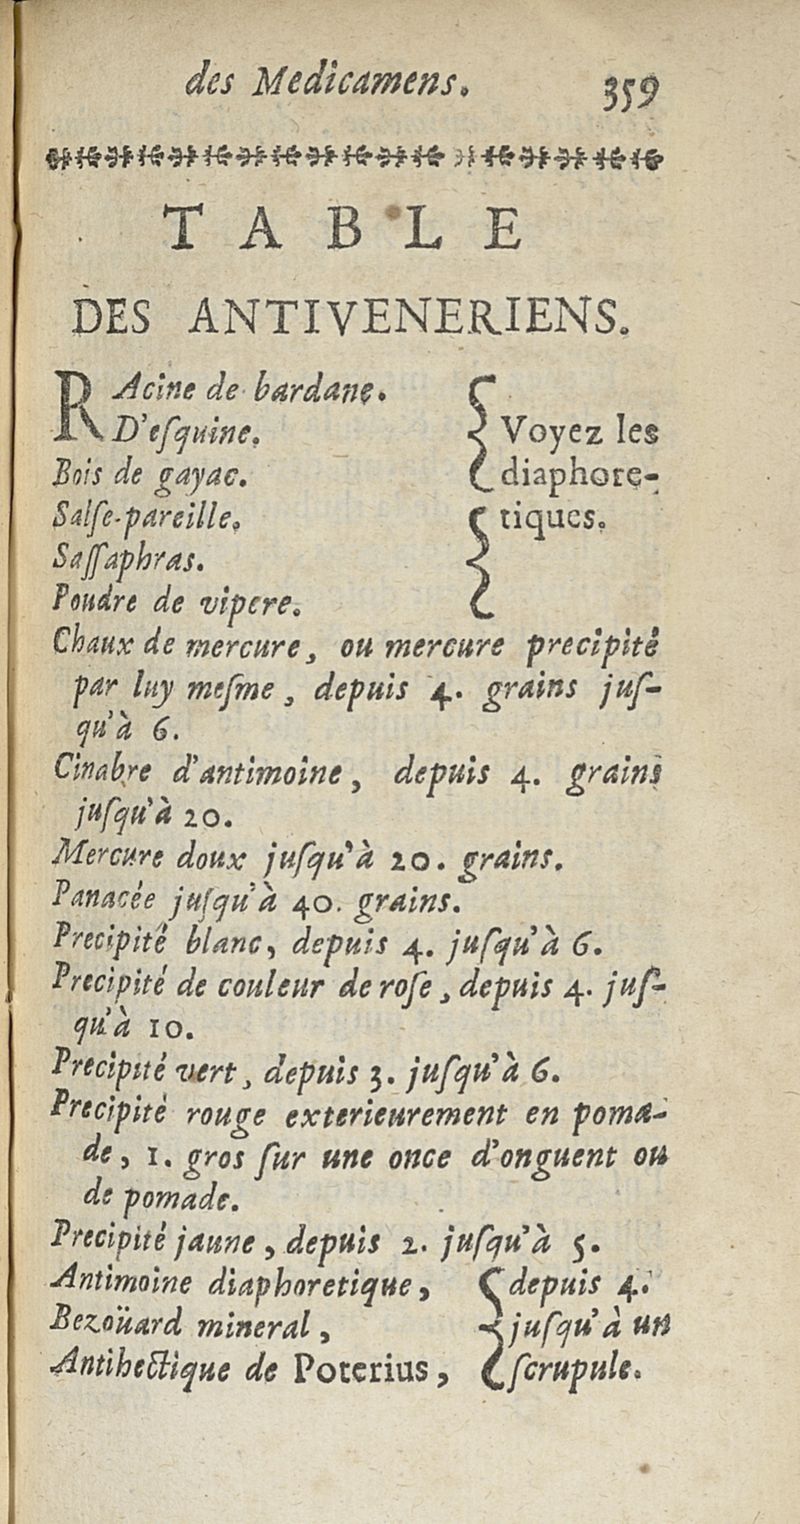 des Medicamens. 359
TABLE
DES ANTIVENERIENS.
RAcine de bardane.
D'eſquine. Voyez les
Bois de gayac. diaphore-
Salſe-pareille. tiques.
Saſſaphras.
Poudre de vipere.
Chaux de mercure, ou mercure precipité
par luy meſme, depuis 4. grains juſ-
qu'à 6.
Cinabre d'antimoine, depuis 4. grains
juſqu'à 20.
Mercure doux juſqu'à 20. grains.
Panacée juſqu'à 40. grains.
Precipité blanc, depuis 4. juſqu'à 6.
Precipité de couleur de roſe, depuis 4. juſ-
qu'à 10.
Precipité vert, depuis 3. juſqu'à 6.
Precipité rouge exterieurement en poma-
de, 1. gros ſur une once d'onguent ou
de pomade.
Precipité jaune, depuis 2. juſqu'à 5.
Antimoine diaphoretique, depuis 4.
Bezoüard mineral, juſqu'à un
Antihectique de Poterius, ſcrupule.